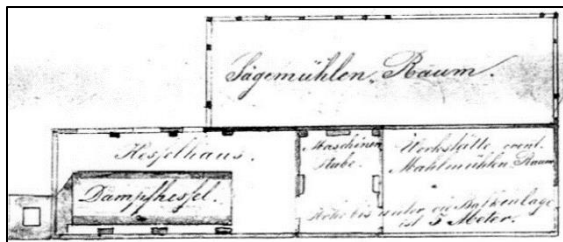 Sägemühlen Raum.
Kesselhaus.
Dampfkessel.
Maschinen
Stube.
Werkstätte event.
Mahlmühlen Raum
Höhe bis unter die Balkenlage
ist 5 Meter.